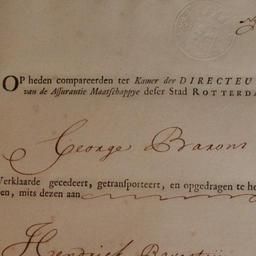 OP heden compareerden ter Kamer der DIRECTEU
van de Assurantie Maatschappye deser Stad ROTTERDA
George Barons
Verklaarde gecedeert, getransporteert, en opgedragen te he
en, mits dezen aan
Hendrik